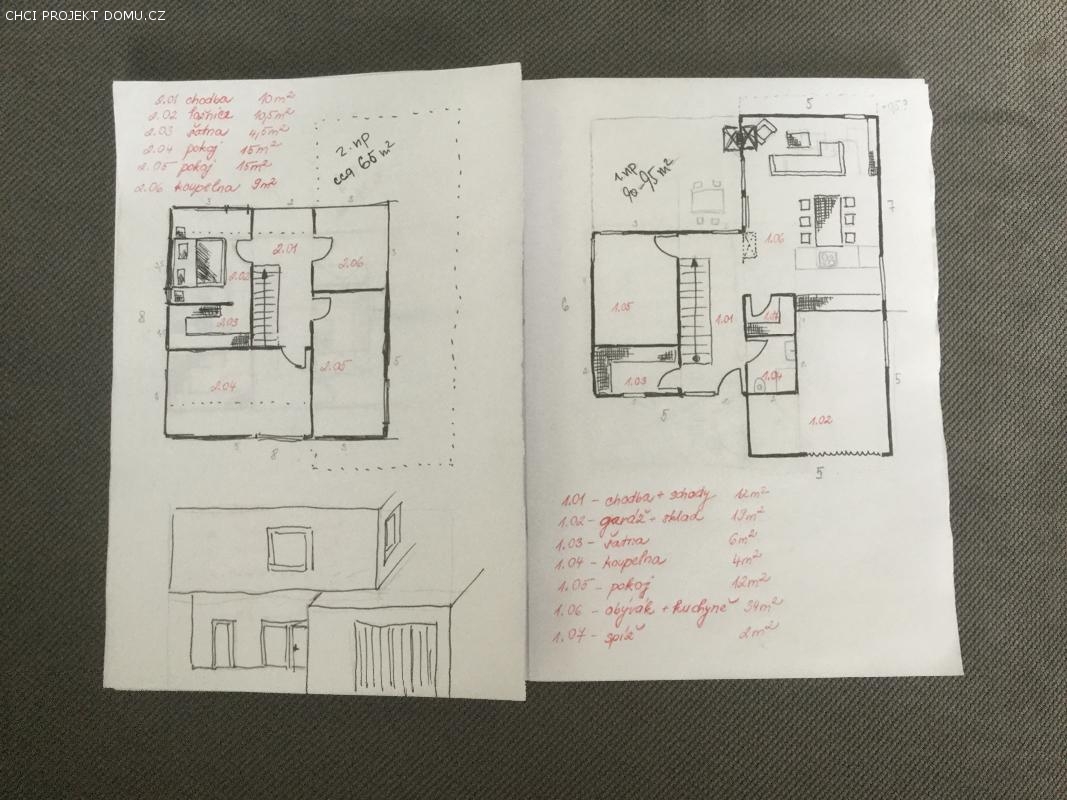 CHCI PROJEKT DOMU.CZ
2.01 chodba 10 m²
2.02 ložnice 10,5m²
2.03 šatna 4,5m²
2.04 pokoj 15m²
2.05 pokoj 15m²
2.06 koupelna 9m²
2. NP
cca 65 m²
3 2 3
2.01
2.06
2.02
2.03
2.05
2.04
8
3
5
3
5
8
3
5
1. NP
90-95 m²
3
7
1.06
6
1.05
1.01
1.07
1.03
1.04
2
2
5
1.02
5
5
1.01 - chodba + schody 12m²
1.02 - garáž + sklad 19m²
1.03 - šatna 6m²
1.04 - koupelna 4m²
1.05 - pokoj 12m²
1.06 - obývák + kuchyně 34m²
1.07 - spíž 2m²